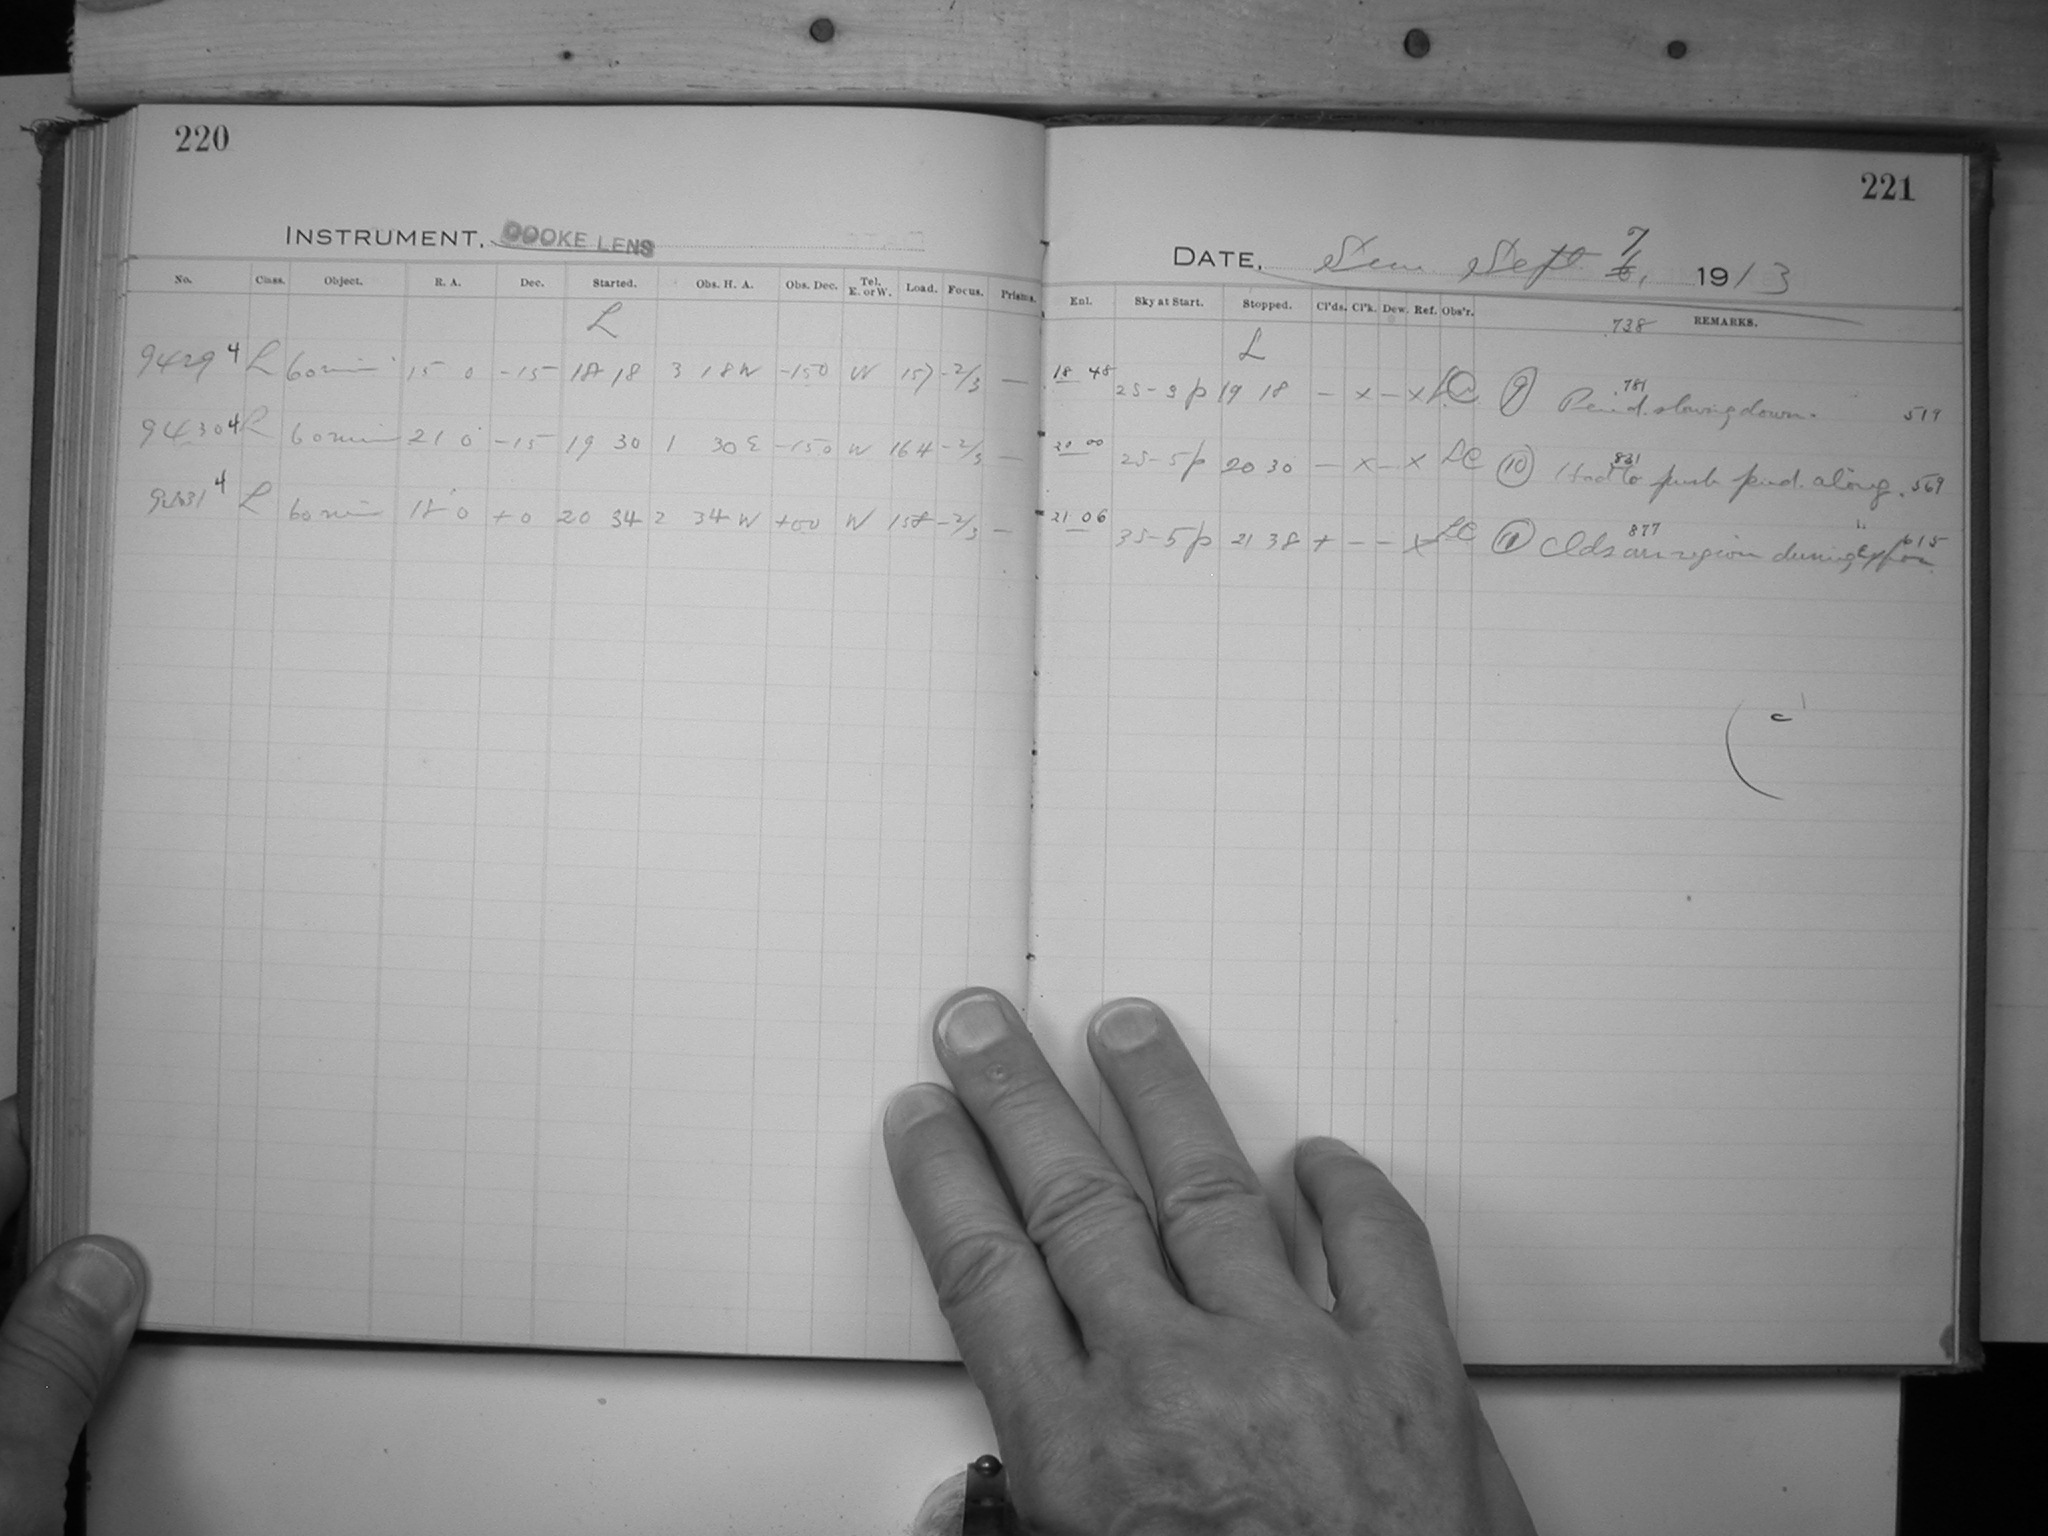 220
INSTRUMENT, COOKE LENS
No. Class. Object. R. A. Dec. Started. Obs. H. A. Obs. Dec. Tel. E. or W. Load. Focus. Prisms.
L
9429 4 L 60 min 15 0 -15 18 18 3 18 W -150 W 157 -2/3 —
9430 4 L 60 min 21 0 -15 19 30 1 30 E -150 W 164 -2/3 —
9431 4 L 60 min 18 0 +0 20 34 2 34 W +00 W 158 -2/3 —
221
DATE, Sun Sept. 7 6, 1913
Enl. Sky at Start. Stopped. Cl'ds. Cl'k. Dew. Ref. Obs'r. REMARKS.
738
L
18 48 25-3p 19 18 — x — x LC 9 781 Pend. slowing down. 519
20 00 25-5p 20 30 — x — x LC 10 831 Had to push pend. along. 569
21 06 35-5p 21 38 + — — x LC 11 877 Clds on region during expos. 615